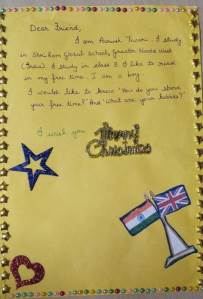 Dear Friend,
I am Aarush Tiwari. I study
in Shri Ram Global school, Greater Noida west
(India). I study in class 3. I like to read
in my free time. I am a boy.
I would like to know "How do you spare
your free time?" And "What are your hobbies?"
I wish you
Merry
Christmas